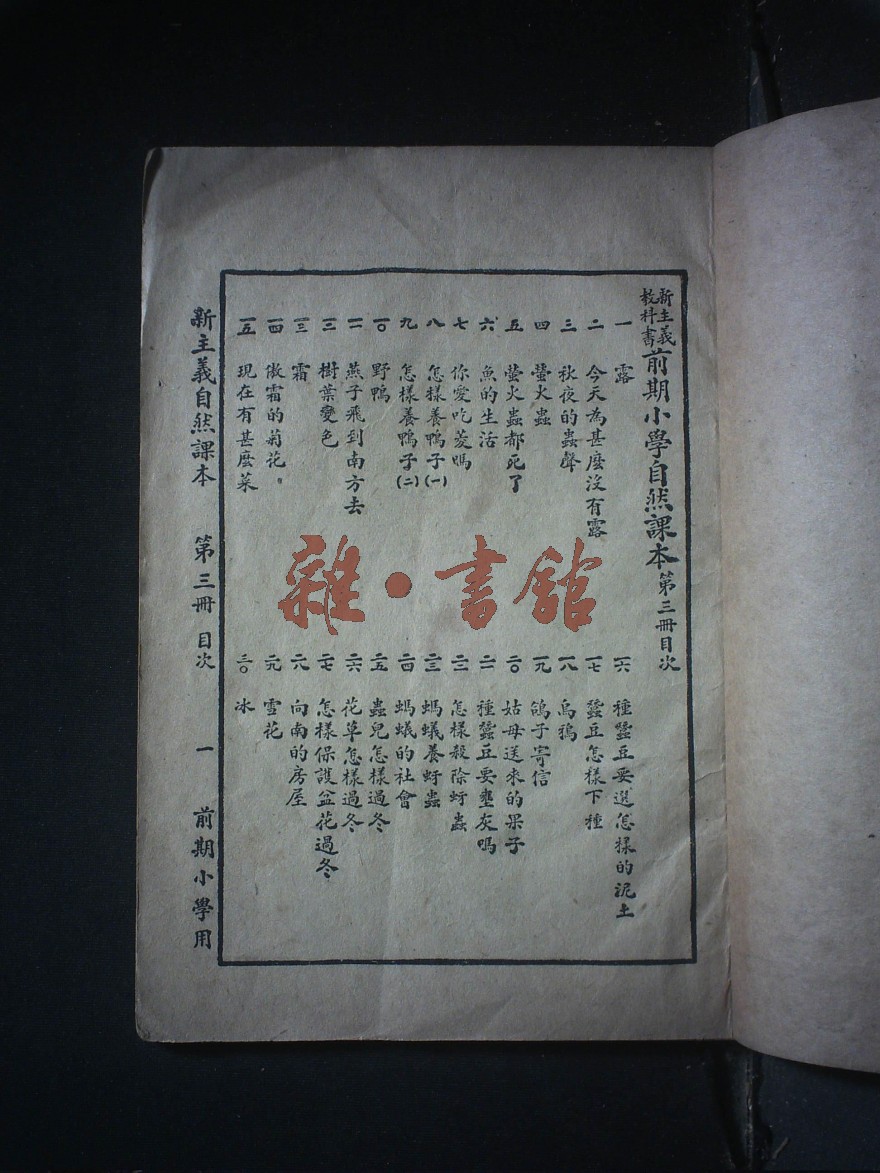 新主義教科書前期小學自然課本第三冊目次
一 露
二 今天為甚麼沒有露
三 秋夜的蟲聲
四 螢火蟲
五 螢火蟲都死了
六 魚的生活
七 你愛吃菱嗎
八 怎樣養鴨子(一)
九 怎樣養鴨子(二)
一〇 野鴨
一一 燕子飛到南方去
一二 樹葉變色
一三 霜
一四 傲霜的菊花。
一五 現在有甚麼菜
一六 種蠶豆要選怎樣的泥土
一七 蠶豆怎樣下種
一八 烏鴉
一九 鴿子寄信
二〇 姑母送來的果子
二一 種蠶豆要壅灰嗎
二二 怎樣殺除蚜蟲
二三 螞蟻養蚜蟲
二四 螞蟻的社會
二五 蟲兒怎樣過冬
二六 花草怎樣過冬
二七 怎樣保護盆花過冬
二八 向南的房屋
二九 雪花
三〇 冰
新主義自然課本 第三冊 目次 一 前期小學用
雜·書館